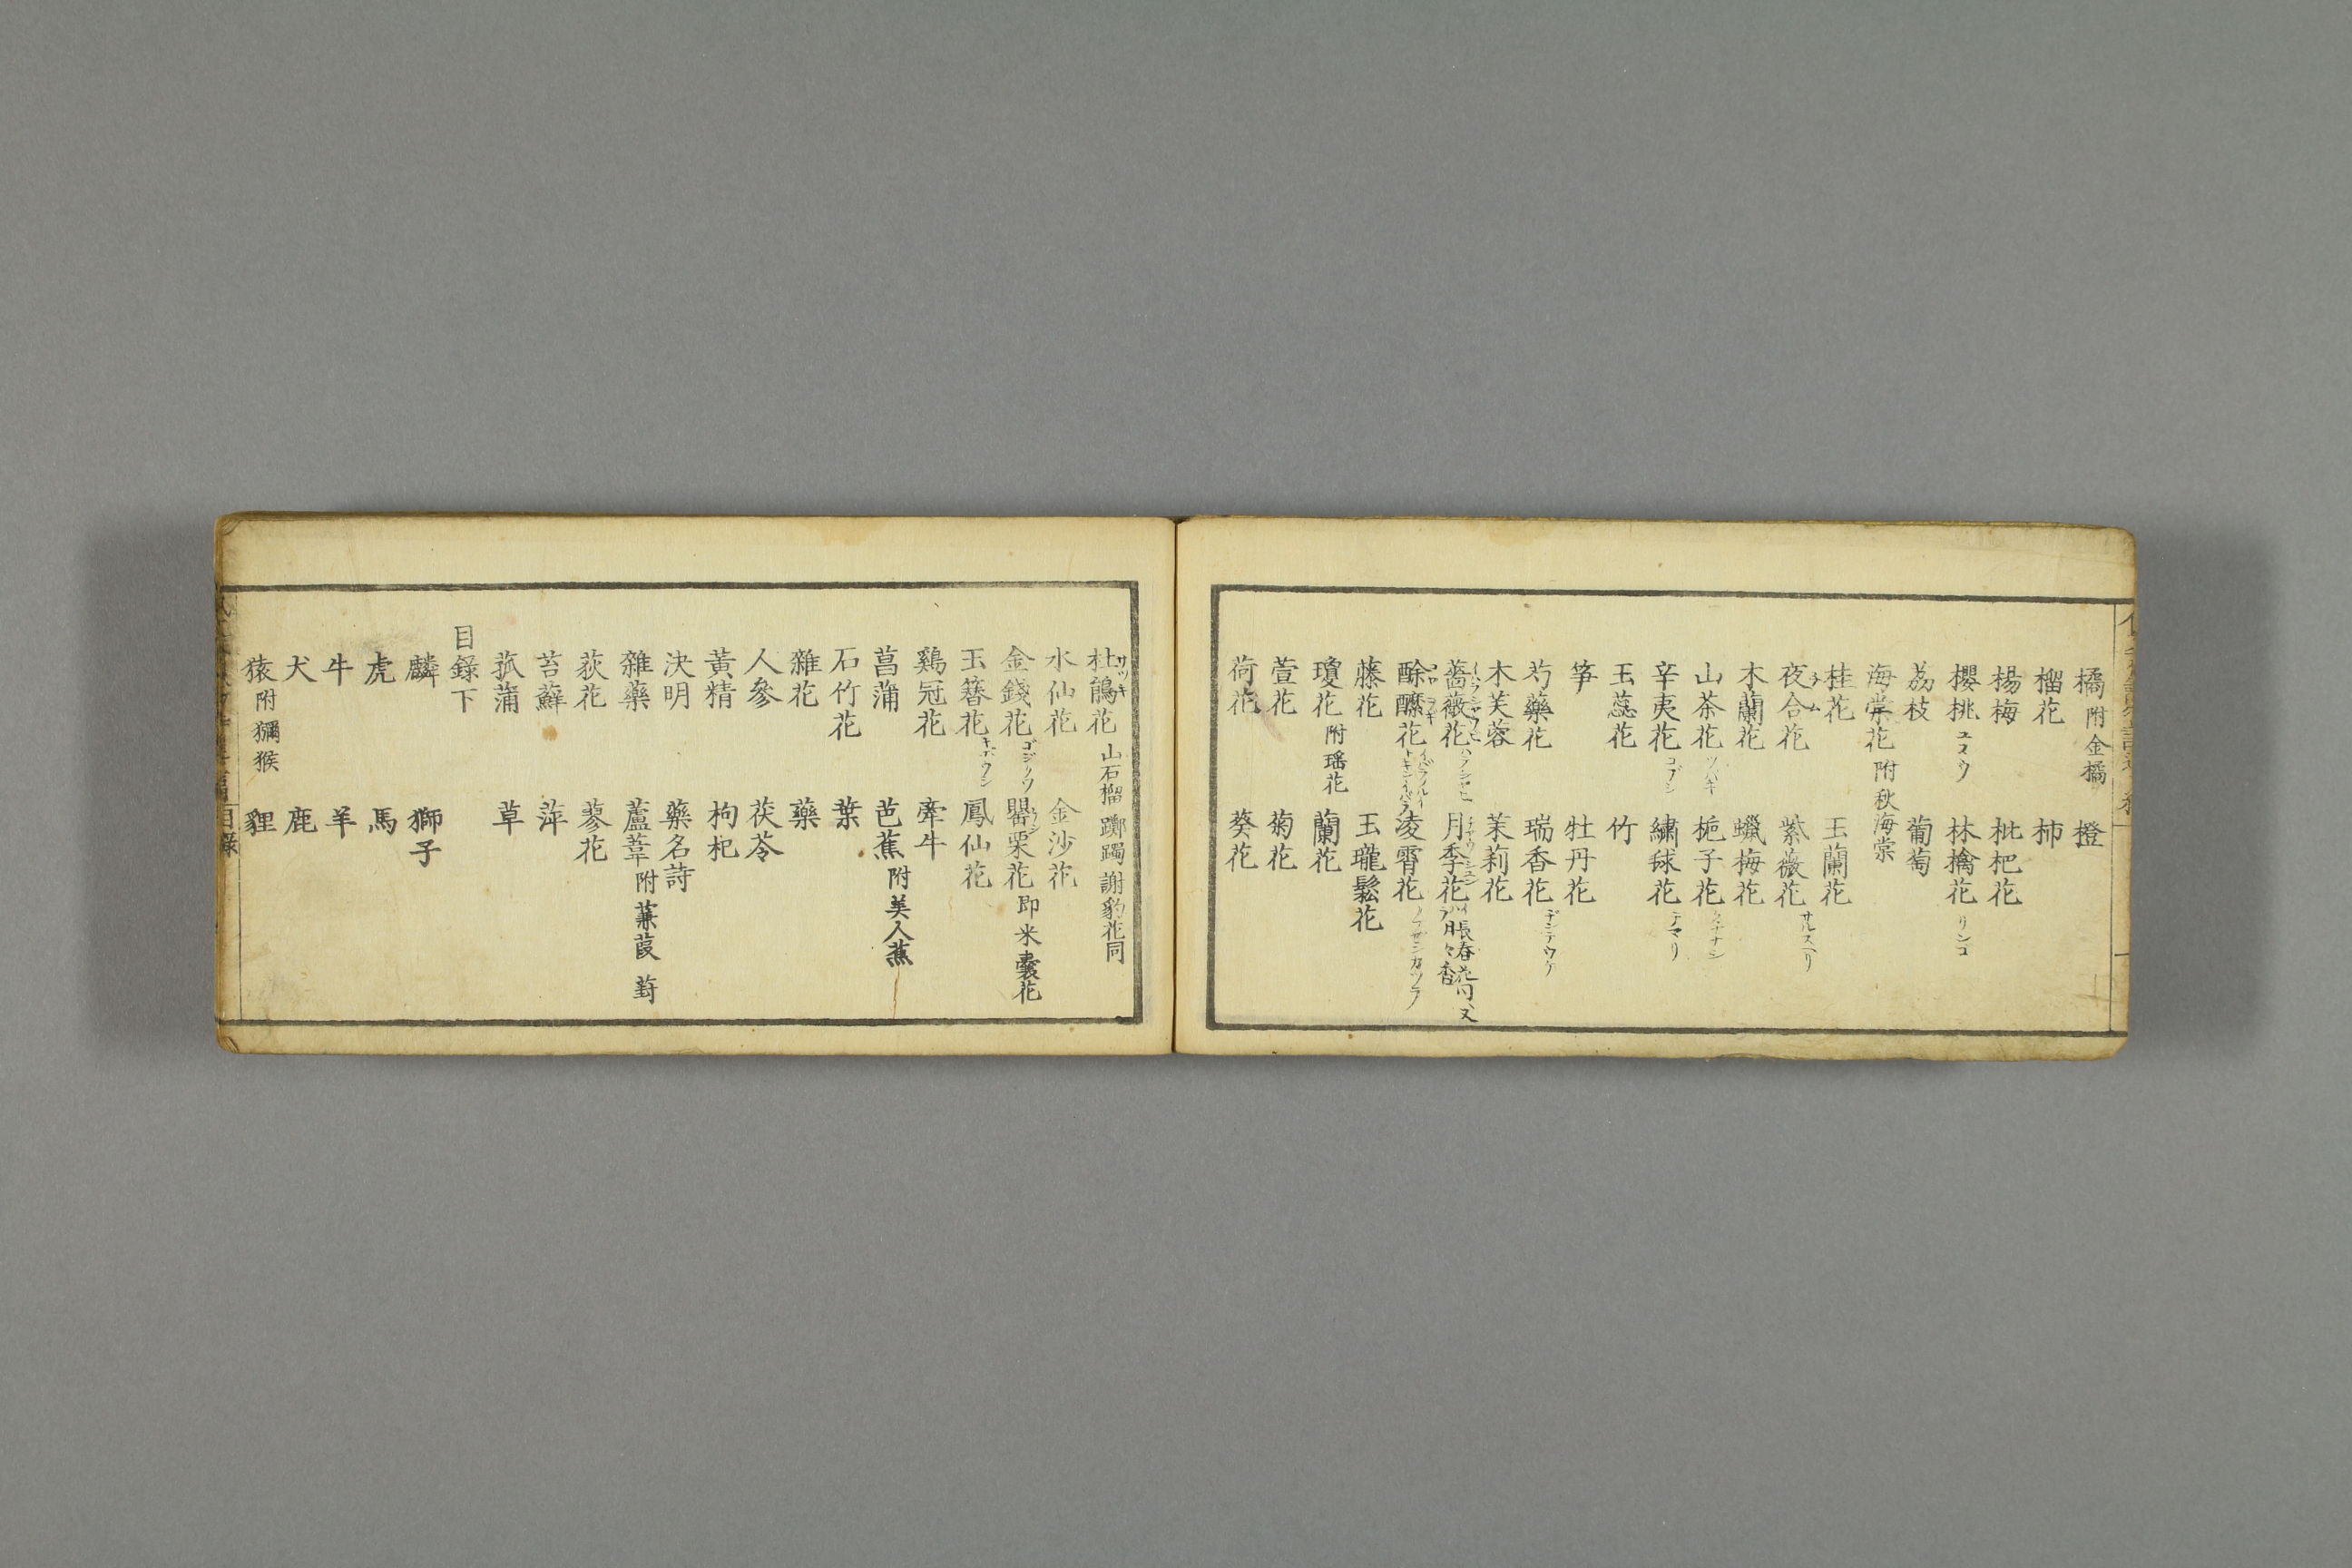 橘附金橘 橙
榴花 柿
楊梅 枇杷花
櫻桃ユスウ 林檎花リンゴ
茘枝 葡萄
海棠花附秋海棠
桂花 玉蘭花
夜合花子ム 紫薇花サルスヘリ
木蘭花 蠟梅花
山茶花ツバキ 梔子花クチナシ
辛夷花コブシ 繡毬花テマリ
玉蕊花 竹
筝 牡丹花
芍藥花 瑞香花ヂンテウゲ
木芙蓉 茉莉花
薔薇花 月季花 長春花同又月々香
酴醾花 凌霄花ノウゼンカツラ
藤花 玉瓏鬆花
瓊花附瑶花 蘭花
萱花 菊花
荷花 葵花
杜鵑花サツキ 山石榴 躑躅 謝豹花同
水仙花 金沙花
金錢花ゴジクワ 罌栗花即米囊花
玉簪花キボウシ 鳳仙花
鷄冠花 牽牛
菖蒲 芭蕉附美人蕉
石竹花 葉
雜花 藥
人參 茯苓
黃精 枸杞
決明 藥名詩
雜藥 蘆葦附蒹葭 葑
荻花 蓼花
苔蘚 萍
菰蒲 草
目錄下
麟 獅子
虎 馬
牛 羊
犬 鹿
猿附獼猴 貍
目錄